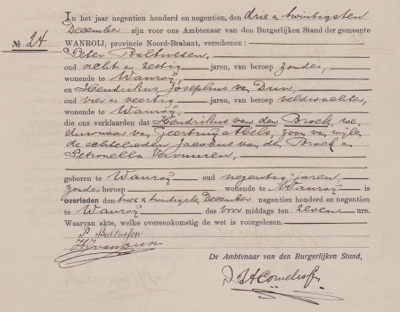 In het jaar negentien honderd en negentien, den drie en twintigsten
December zijn voor ons Ambtenaar van den Burgerlijken Stand der gemeente
№ 24
WANROIJ, provincie Noord-Brabant, verschenen:
Peter Baltussen,
oud acht en zestig jaren, van beroep zonder,
wonende te Wanroij
en Hendrikus Josephus van Duin,
oud vier en veertig jaren, van beroep veldwachter,
wonende te Wanroij
die ons verklaarden dat Hendrikus van den Broek, we-
duwnaar van Geertruij, zoon van wijlen
de echtelieden Jacobus van den Broek en
Petronella
geboren te Wanroij oud negentig jaren,
zonder beroep wonende te Wanroij is
overleden den twee en twintigsten December negentien honderd en negentien
te Wanroij des voor middags te zeven ure.
Waarvan akte, welke overeenkomstig de wet is voorgelezen.
P. Baltussen
De Ambtenaar van den Burgerlijken Stand,